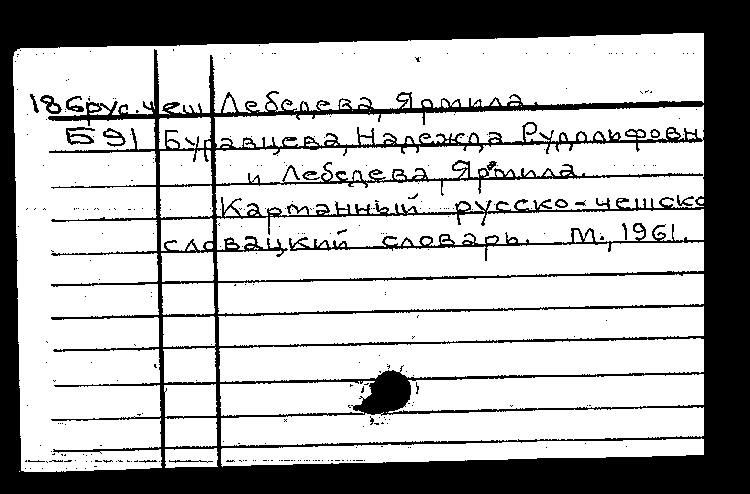 18 Cрус.чеш Лебедева, Ярмила.
Б 91 Буравцева, Надежда Рудольфовн
и Лебедева, Ярмила.
Карманный русско-чешско
словацкий словарь. М., 1961.